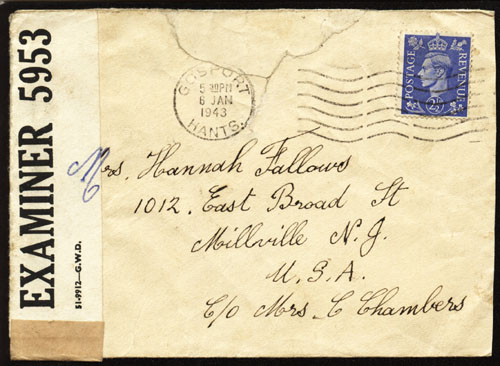 EXAMINER 5953
51-9912-G.W.D.
GOSPORT
5 30 PM
6 JAN
1943
HANTS.
POSTAGE
REVENUE
2½
Mrs. Hannah Fallows
1012. East Broad St
Millville N.J.
U.S.A.
C/o Mrs C Chambers